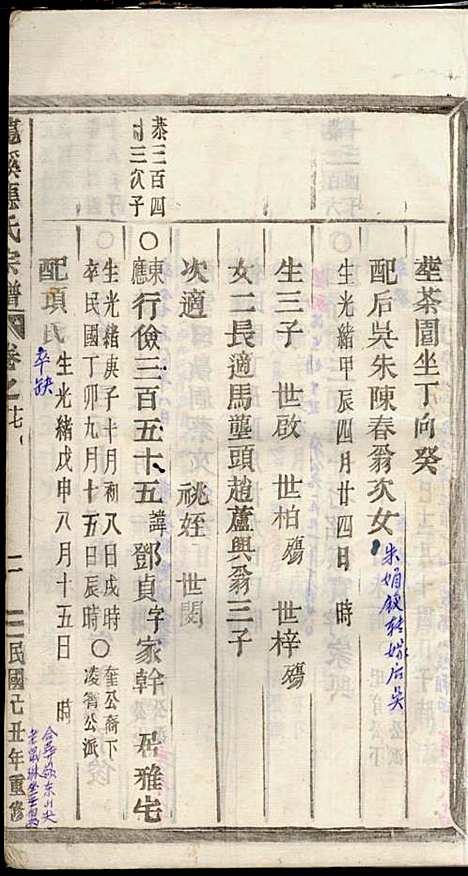 塟茶園坐丁向癸
配后吳朱陳春翁次女
朱娟
转嫁后吳
生光緒甲辰四月廿四日 時
生三子 世啟 世柏殤 世梓殤
女二長適馬壟頭趙蘆興翁三子
次適 祧姪 世閔
恭三百四
三次子
〇東應行儉三百五十五諱鄧貞字家幹 居雅宅
生光緒庚子十月初八日戌時 奎公裔下
卒民國丁卯九月十五日辰時〇凌智公派
配項氏 生光緒戊申八月十五日 時
卒缺
溪應氏宗譜 卷之 二 民國己丑年重修